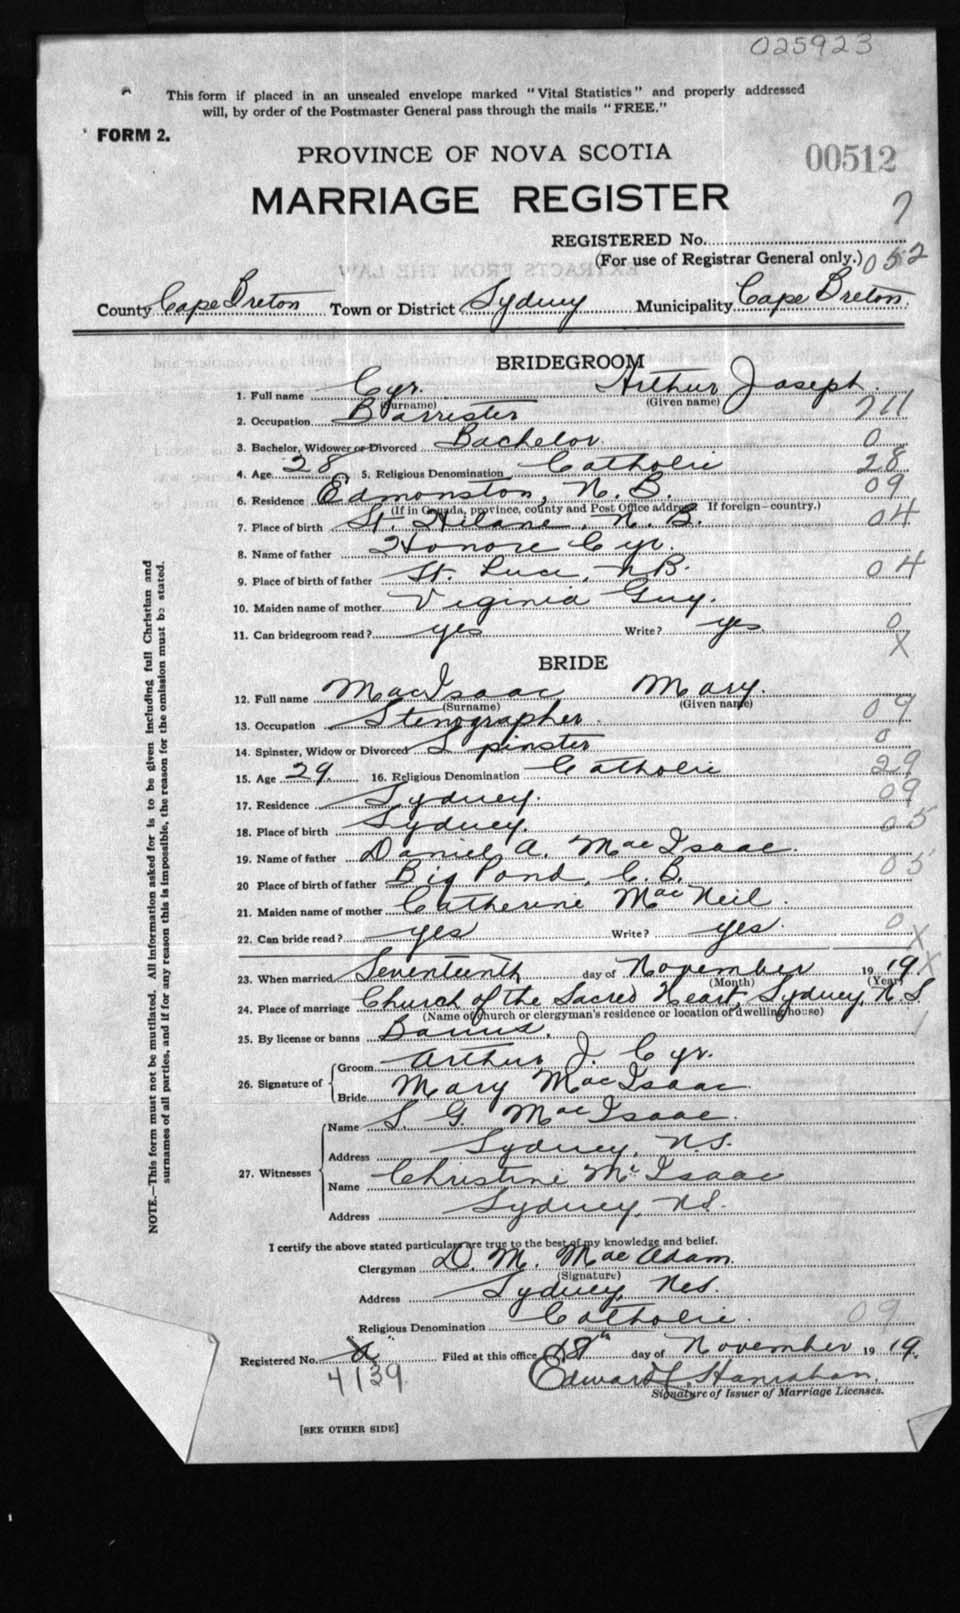 025923
This form if placed in an unsealed envelope marked "Vital Statistics" and properly addressed
will, by order of the Postmaster General pass through the mails "FREE."
FORM 2.
PROVINCE OF NOVA SCOTIA
00512
MARRIAGE REGISTER
7
REGISTERED No.
(For use of Registrar General only.) 052
County Cape Breton Town or District Sydney Municipality Cape Breton.
BRIDEGROOM
1. Full name Cyr. Arthur Joseph.
(Surname) (Given name)
2. Occupation Barrister 711
3. Bachelor, Widower or Divorced Bachelor. 0
4. Age 28 5. Religious Denomination Catholic 28
6. Residence Edmonston, N. B. 09
(If in Canada, province, county and Post Office address. If foreign—country.)
7. Place of birth St. Hilane, N. B. 04
8. Name of father Honore Cyr.
9. Place of birth of father St. Luce, N.B. 04
10. Maiden name of mother Virginia Guy.
11. Can bridegroom read? yes Write? yes 0
X
BRIDE
12. Full name MacIsaac Mary.
(Surname) (Given name)
13. Occupation Stenographer. 09
14. Spinster, Widow or Divorced Spinster 0
15. Age 29 16. Religious Denomination Catholic 29
17. Residence Sydney. 09
18. Place of birth Sydney. 05
19. Name of father Daniel A. MacIsaac.
20 Place of birth of father Big Pond, C. B. 05
21. Maiden name of mother Catherine MacNeil.
22. Can bride read? yes Write? yes. 0 X
23. When married Seventeenth day of November 19 19. X
(Month) (Year)
24. Place of marriage Church of the Sacred Heart, Sydney, N. S.
(Name of church or clergyman's residence or location of dwelling house)
25. By license or banns Banns. 1
26. Signature of
Groom Arthur J. Cyr.
Bride Mary MacIsaac
27. Witnesses
Name S. G. MacIsaac.
Address Sydney, N.S.
Name Christine McIsaac
Address Sydney, N.S.
I certify the above stated particulars are true to the best of my knowledge and belief.
Clergyman D. M. MacAdam.
(Signature)
Address Sydney, N.S.
Religious Denomination Catholic. 09
Registered No. "a" Filed at this office 18th day of November 19 19.
4139
Edward L. Hanrahan.
Signature of Issuer of Marriage Licenses.
[SEE OTHER SIDE]
NOTE.—This form must not be mutilated. All information asked for is to be given including full Christian and
surnames of all parties, and if for any reason this is impossible, the reason for the omission must be stated.